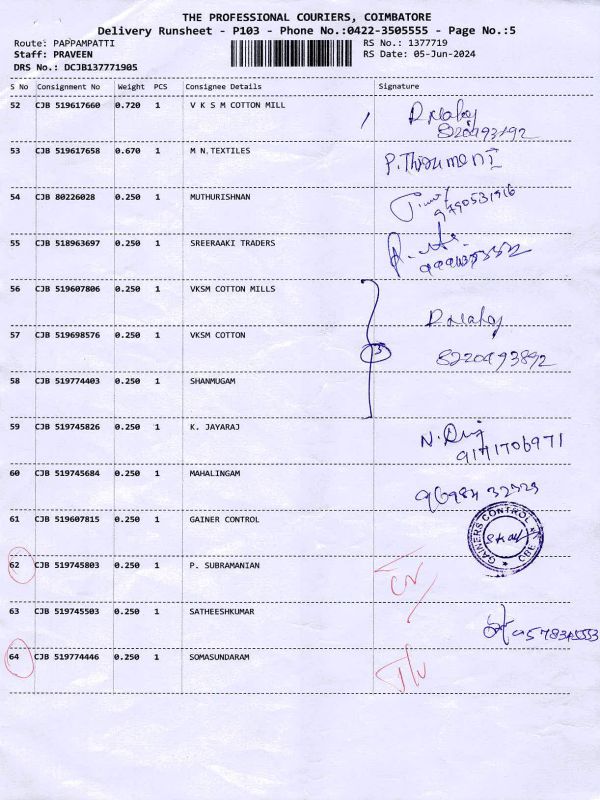 THE PROFESSIONAL COURIERS, COIMBATORE
Delivery Runsheet - P103 - Phone No.:0422-3505555 - Page No.:5
Route: PAPPAMPATTI RS No.: 1377719
Staff: PRAVEEN RS Date: 05-Jun-2024
DRS No.: DCJB137771905
S No Consignment No Weight PCS Consignee Details Signature
52 CJB 519617660 0.720 1 V K S M COTTON MILL
53 CJB 519617658 0.670 1 M N.TEXTILES
54 CJB 80226028 0.250 1 MUTHURISHNAN
9790531916
55 CJB 518963697 0.250 1 SREERAAKI TRADERS
56 CJB 519607806 0.250 1 VKSM COTTON MILLS
57 CJB 519698576 0.250 1 VKSM COTTON 3 8220493892
58 CJB 519774403 0.250 1 SHANMUGAM
59 CJB 519745826 0.250 1 K. JAYARAJ
9171706971
60 CJB 519745684 0.250 1 MAHALINGAM
61 CJB 519607815 0.250 1 GAINER CONTROL GAINERS CONTROL CBE
62 CJB 519745803 0.250 1 P. SUBRAMANIAN
63 CJB 519745503 0.250 1 SATHEESHKUMAR
64 CJB 519774446 0.250 1 SOMASUNDARAM